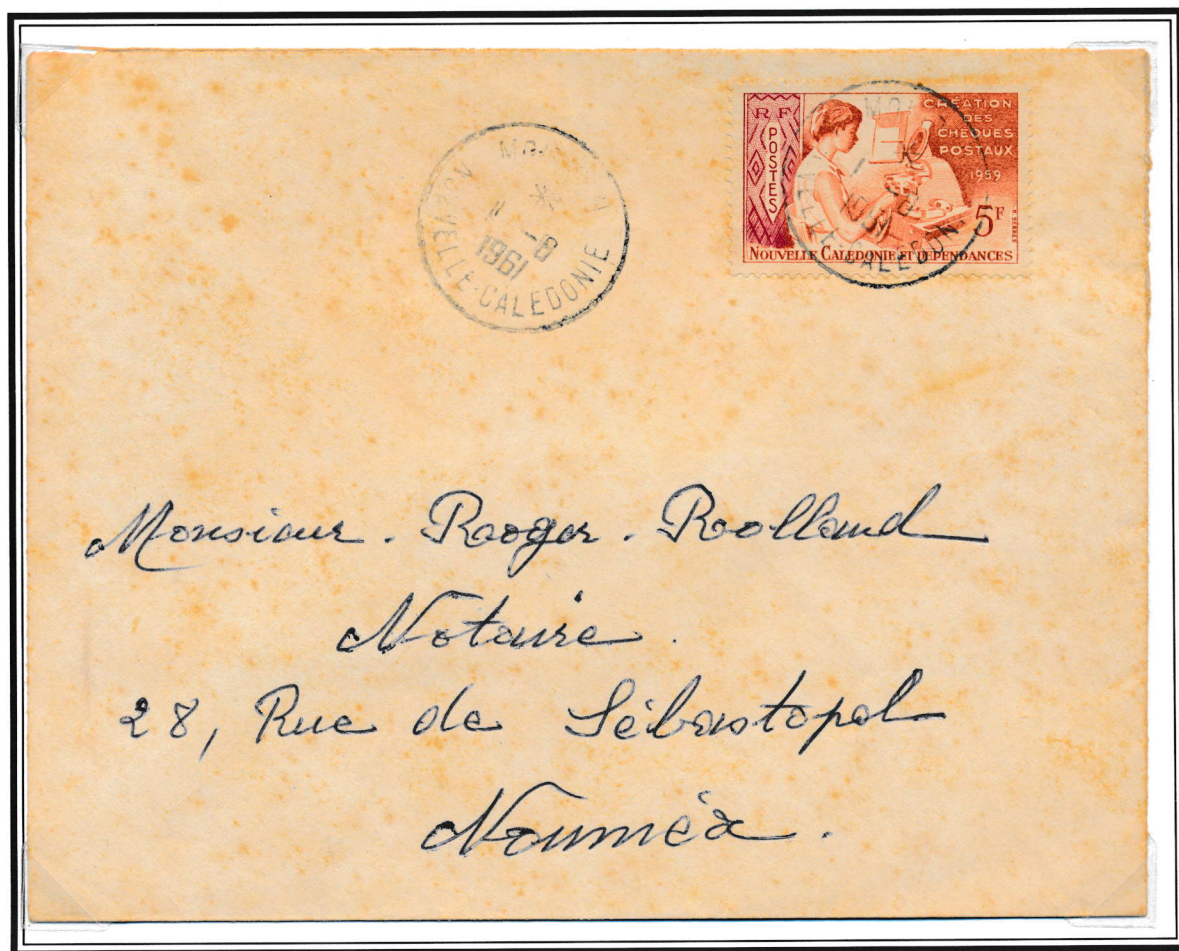 NOUVELLE-CALEDONIE
1961
-8
RF
POSTES
CRÉATION
DES
CHÈQUES
POSTAUX
1959
5F
NOUVELLE CALÉDONIE ET DÉPENDANCES
1961
Monsieur. Roger. Rolland
Notaire.
28, Rue de Sébastopol
Nouméa.